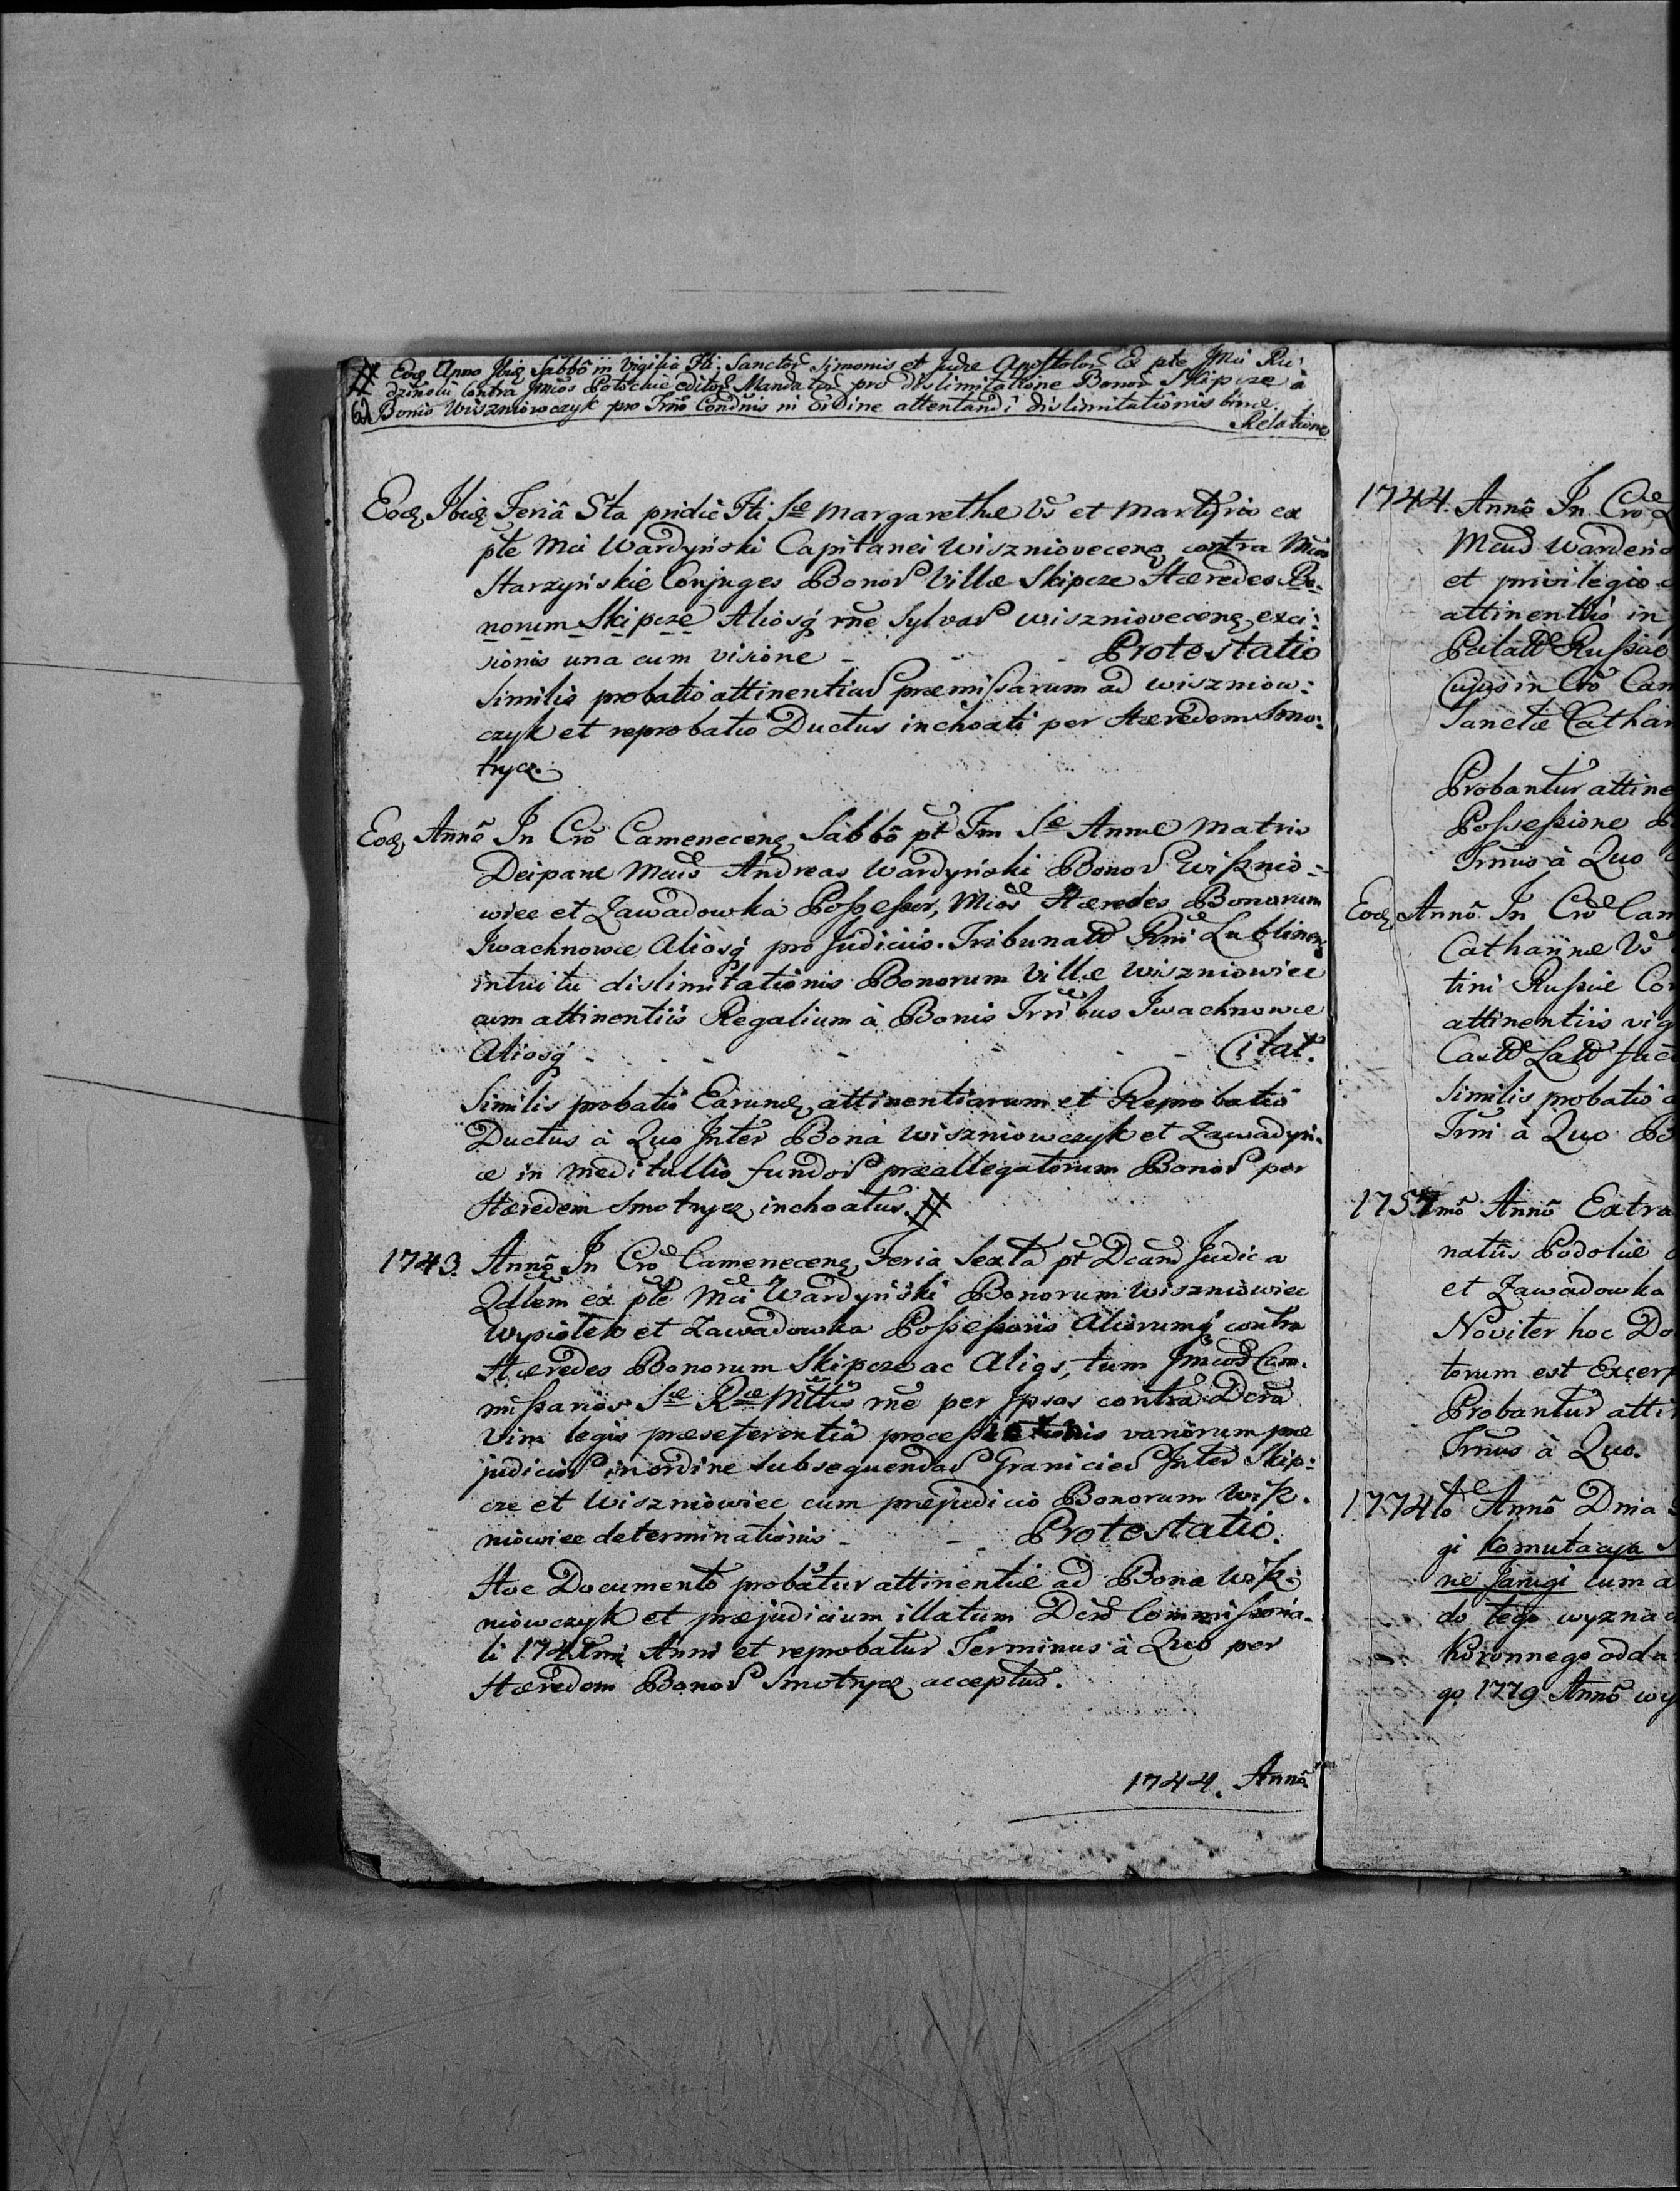 # Eodꝫ Anno Ibidꝫ Sabbô in Vigilia Fti Sanctor Simonis et Judæ Apostolor Ex pte Mci Ru:
dzinskii Contra Jmcos Potockie editor Mandator pro dislimitatione Bonor Skipcze à
Bonis Wiszniowczyk pro Trno Condnis in ordine attentandi dislimitationis
Relatione
Eodꝫ Ibidꝫ Feriâ 5ta pridie Fti Sæ Margarethæ Vs et Martyris ex
pte Mci Wardyński Capitanei Wiszniovecenꝫ contra Mcos
Starzyńskie Conjuges Bonor Villæ Skipcze Hæredes Bo:
norum Skipcze Aliosq rne Sylvar Wiszniovecenꝫ exci:
sionis una cum visione - - - Protestatio
Similis probatio attinentiar præmissarum ad Wiszniow:
czyk et reprobatio Ductus inchoati per Hæredem Smo:
trycz.
Eodꝫ Annô In Crô Camenecenꝫ Sabbô pt Fm Sæ Annæ Matris
Deiparæ Mcus Andreas Wardyński Bonor Wisznio=
wiec et Zawadowka Possessor, Mcos Hæredes Bonorum
Iwachnowce Aliosq pro Judiciis Tribunal Rni Lublinenꝫ
intuitu dislimitationis Bonorum Villæ Wiszniowiec
cum attinentiis Regalium à Bonis Trribus Iwachnowce
Aliosq - - - - - Citat.
Similis probatio Earundꝫ attinentiarum et Reprobatio
Ductus à Quo Inter Bona Wiszniowczyk et Zawadyn:
ce in meditullio fundor præallegatorum Bonor per
Hæredem Smotrycz inchoatus. #
1743. Annô In Crô Camenecenꝫ Feria Sexta pt Dcam Judica
Qdlem ex pte Mci Wardyński Bonorum Wiszniowiec
Wysiołek et Zawadowka Possessoris Aliorumq contra
Hæredes Bonorum Skipcze ac Alios, tum Jmcos Com:
missarios Sæ Ræ Mttis rne per Ipsos contra Dcra
Vim legis præseferentia processi variorum præ
judicior in ordine subsequendar Granicies Inter Skip:
cze et Wiszniowiec cum præjudicio Bonorum Wisz:
niowiec determinationis - - Protestatio.
Hoc Documento probatur attinentiæ ad Bona Wisz:
niowczyk et præjudicium illatum Dcro Commissoria:
li 174 mi Anni et reprobatur Terminus à Quo per
Hæredem Bonor Smotrycz acceptus.
1744. Annô
1744. Annô In Crô
Mcus Warden
et privilegio
attinentiis in
Palatt Russiæ
Cujus in Crô Cam
Sanctæ Cathar
Probantur attine
Possessione B
Trnus à Quo
Eodꝫ Annô In Crô Cam
Catharinæ Vs
tini Russiæ Co
attinentiis vig
Castt Latt fac
Similis probatio a
Trni à Quo Bo
1757mô Annô Extra
natûs Podoliæ
et Zawadowka
Noviter hoc Do
torum est Excerp
Probantur atti
Trnus à Quo.
1774tô Annô Dnia
gi komutacya
ne Jarugi tum a
do tego wyzna
Koronnego odda
go 1779 Annô wy